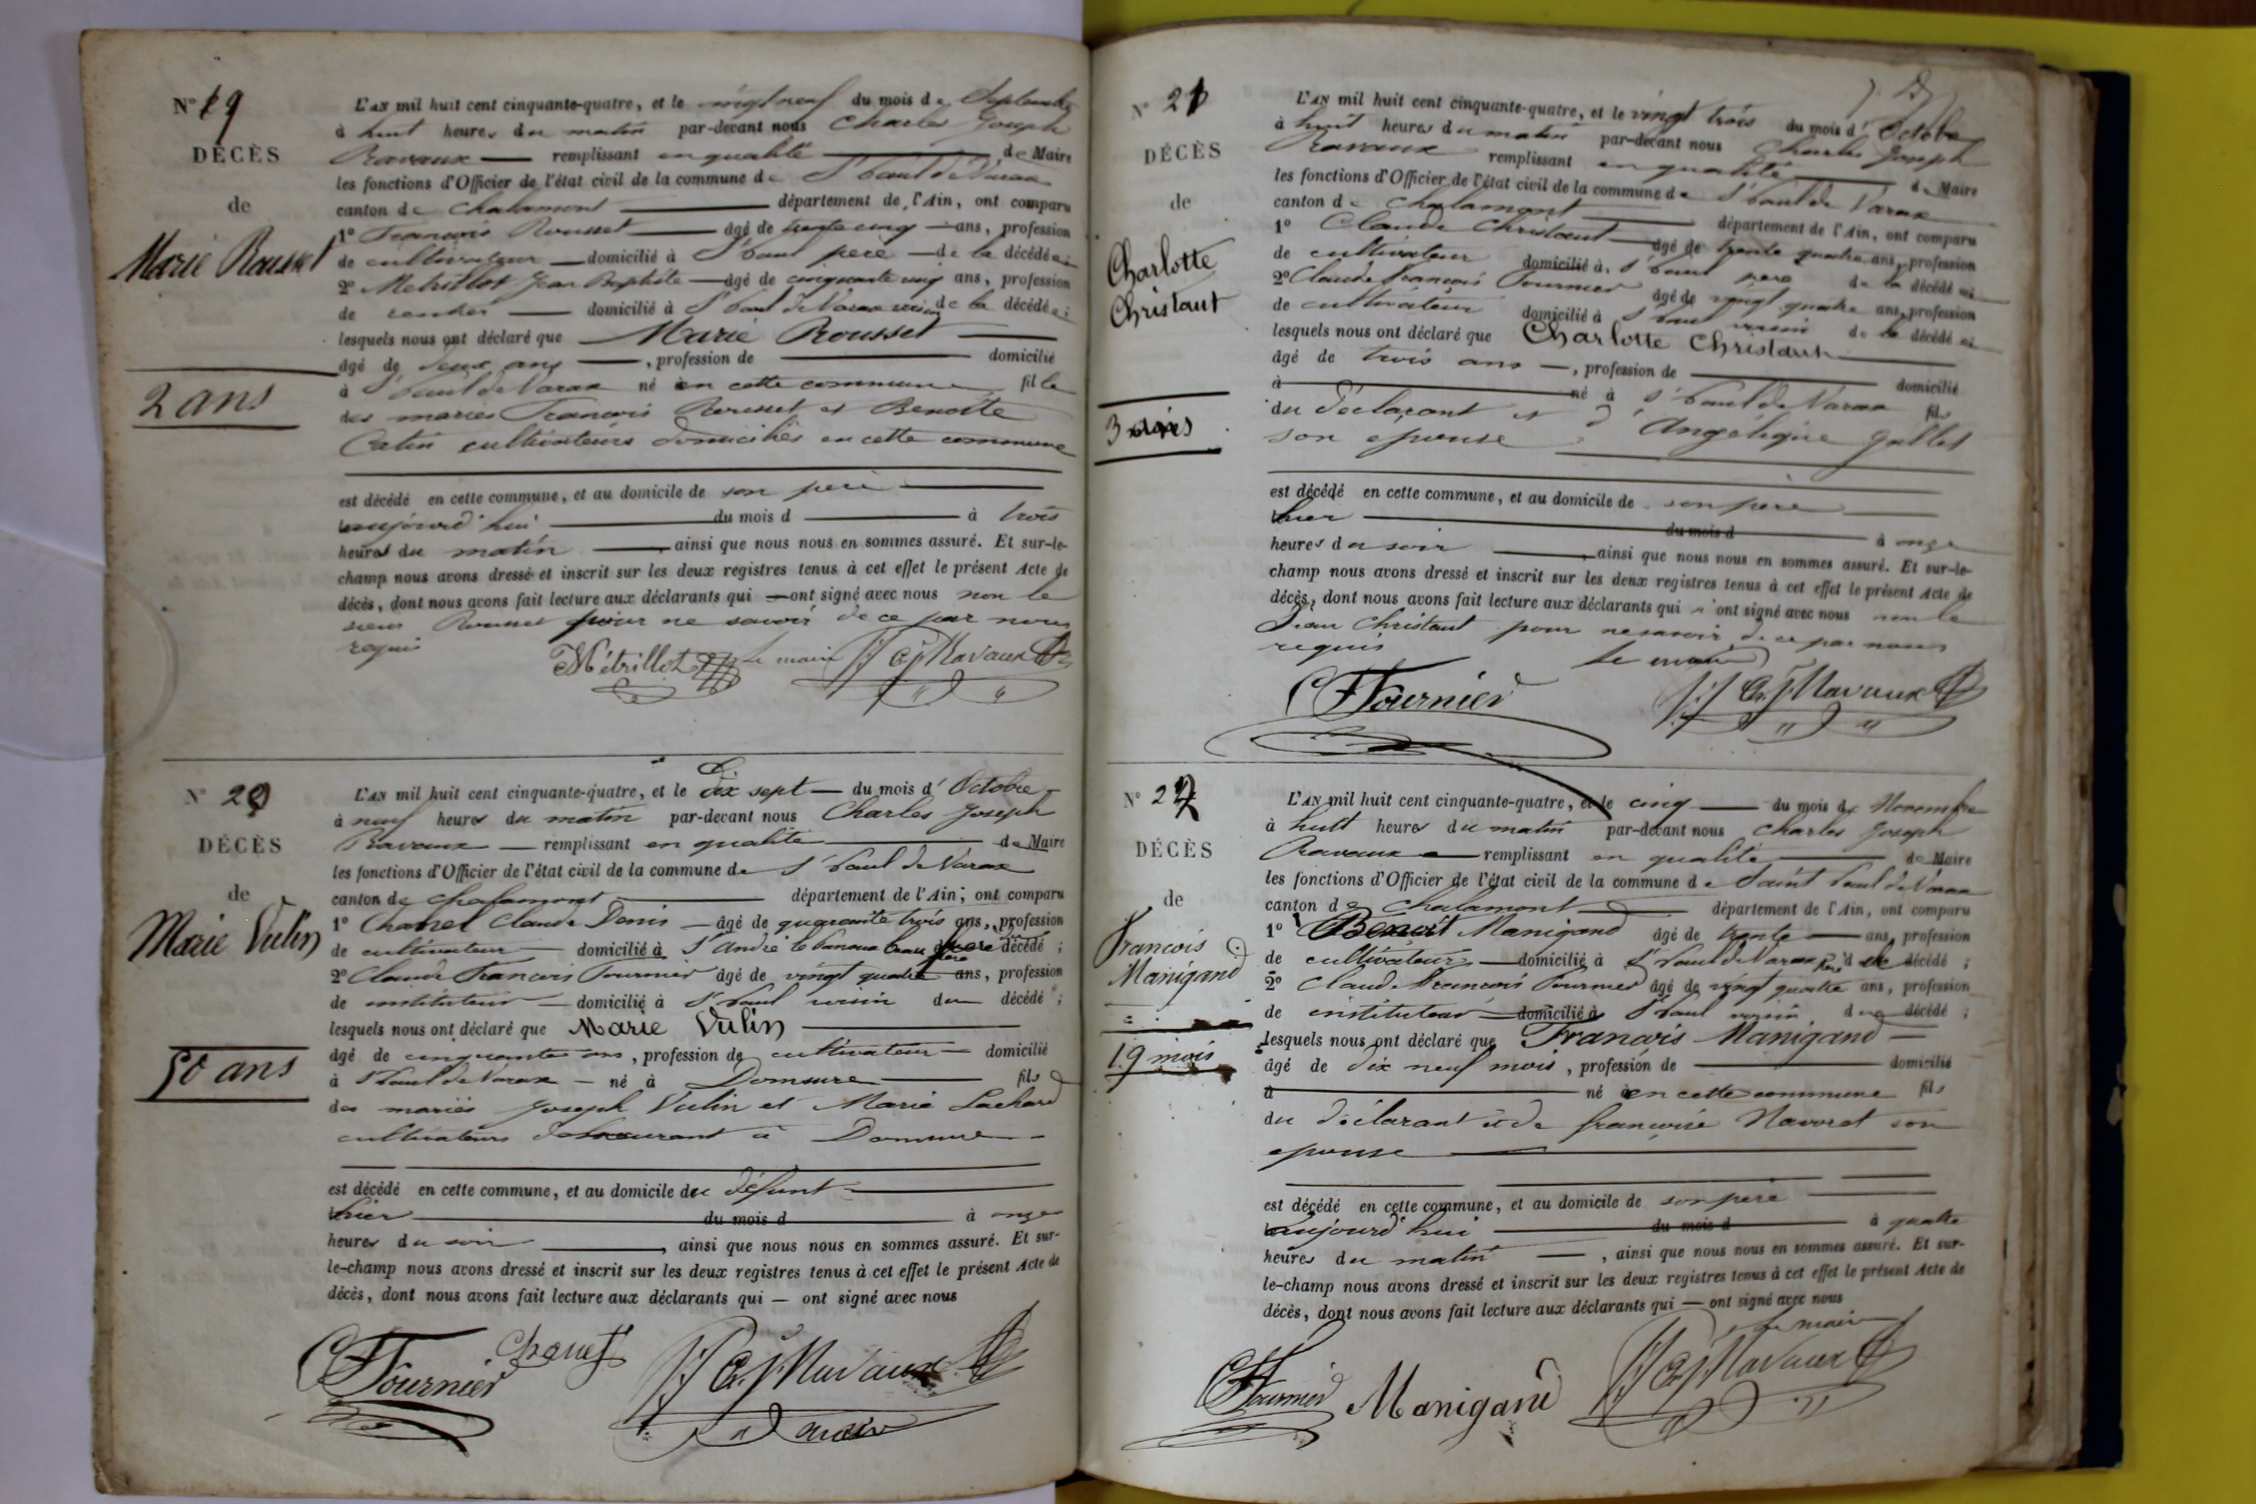 N° 19
DÉCÈS
de
Marie Rousset
2 ans
L'AN mil huit cent cinquante-quatre, et le vingt neuf du mois de Septembre
à huit heures du matin par-devant nous Charles Joseph
Ravaux remplissant en qualité de Maire
les fonctions d'Officier de l'état civil de la commune de St Paul de Varax
canton de Chalamont département de l'Ain, ont comparu
1° François Rousset âgé de trente cinq ans, profession
de cultivateur domicilié à St Paul père de la décédée;
2° Metrillot Jean Baptiste âgé de cinquante cinq ans, profession
de rentier domicilié à St Paul de Varax voisin de la décédée;
lesquels nous ont déclaré que Marie Rousset
âgé de deux ans, profession de domicilié
à St Paul de Varax né en cette commune fille
des mariés François Rousset et Benoite
Catin cultivateurs domiciliés en cette commune
est décédé en cette commune, et au domicile de son père
aujourd'hui du mois d à trois
heures du matin ainsi que nous nous en sommes assuré. Et sur-le-
champ nous avons dressé et inscrit sur les deux registres tenus à cet effet le présent Acte de
décès, dont nous avons fait lecture aux déclarants qui ont signé avec nous non le
sieur Rousset pour ne savoir de ce par nous
requis
Métrillot le maire Ch J Ravaux
N° 20
DÉCÈS
de
Marie Vulin
50 ans
L'AN mil huit cent cinquante-quatre, et le Dix sept du mois d'Octobre
à neuf heures du matin par-devant nous Charles Joseph
Ravaux remplissant en qualité de Maire
les fonctions d'Officier de l'état civil de la commune de St Paul de Varax
canton de Chalamont département de l'Ain; ont comparu
1° Chanel Claude Denis âgé de quarante trois ans, profession
de cultivateur domicilié à St André le Panoux beau frère décédé;
2° Claude François Fournier âgé de vingt quatre ans, profession
de instituteur domicilié à St Paul voisin du décédé;
lesquels nous ont déclaré que Marie Vulin
âgé de cinquante ans, profession de cultivateur domicilié
à St Paul de Varax né à Domsure fils
des mariés Joseph Vulin et Marie Lachard
cultivateurs demeurant à Domsure
est décédé en cette commune, et au domicile du défunt
hier du mois d à onze
heures du soir, ainsi que nous nous en sommes assuré. Et sur-
le-champ nous avons dressé et inscrit sur les deux registres tenus à cet effet le présent Acte de
décès, dont nous avons fait lecture aux déclarants qui ont signé avec nous
CF Fournier Chanel Ch J Ravaux
N° 21
DÉCÈS
de
Charlotte
Christaut
3 ans
L'AN mil huit cent cinquante-quatre, et le vingt trois du mois d'Octobre
à huit heures du matin par-devant nous Charles Joseph
Ravaux remplissant en qualité de Maire
les fonctions d'Officier de l'état civil de la commune de St Paul de Varax
canton de Chalamont département de l'Ain, ont comparu
1° Claude Christaut âgé de trente quatre ans, profession
de cultivateur domicilié à St Paul père de la décédée
2° Claude François Fournier âgé de vingt quatre ans, profession
de cultivateur domicilié à St Paul voisin de la décédée
lesquels nous ont déclaré que Charlotte Christaut
âgé de trois ans, profession de domicilié
à né à St Paul de Varax fils
du déclarant et d'Angelique Gallet
son epouse
est décédé en cette commune, et au domicile de son père
hier du mois d à onze
heures du soir, ainsi que nous nous en sommes assuré. Et sur-le-
champ nous avons dressé et inscrit sur les deux registres tenus à cet effet le présent Acte de
décès, dont nous avons fait lecture aux déclarants qui ont signé avec nous non le
Sieur Christaut pour ne savoir de ce par nous
requis le maire
CF Fournier Ch J Ravaux
N° 22
DÉCÈS
de
François
Manigand
19 mois
L'AN mil huit cent cinquante-quatre, et le cinq du mois de Novembre
à huit heures du matin par-devant nous Charles Joseph
Ravaux remplissant en qualité de Maire
les fonctions d'Officier de l'état civil de la commune de Saint Paul de Varax
canton de Chalamont département de l'Ain, ont comparu
1° Benoit Manigand âgé de trente ans, profession
de cultivateur domicilié à St Paul de Varax père du décédé;
2° Claude François Fournier âgé de vingt quatre ans, profession
de instituteur domicilié à St Paul voisin du décédé;
lesquels nous ont déclaré que François Manigand
âgé de dix neuf mois, profession de domicilié
à né en cette commune fils
du déclarant et de françoise Navoret son
epouse
est décédé en cette commune, et au domicile de son père
aujourd'hui du mois d à quatre
heures du matin, ainsi que nous nous en sommes assuré. Et sur-
le-champ nous avons dressé et inscrit sur les deux registres tenus à cet effet le présent Acte de
décès, dont nous avons fait lecture aux déclarants qui ont signé avec nous
le maire
CF Fournier Manigand Ch J Ravaux